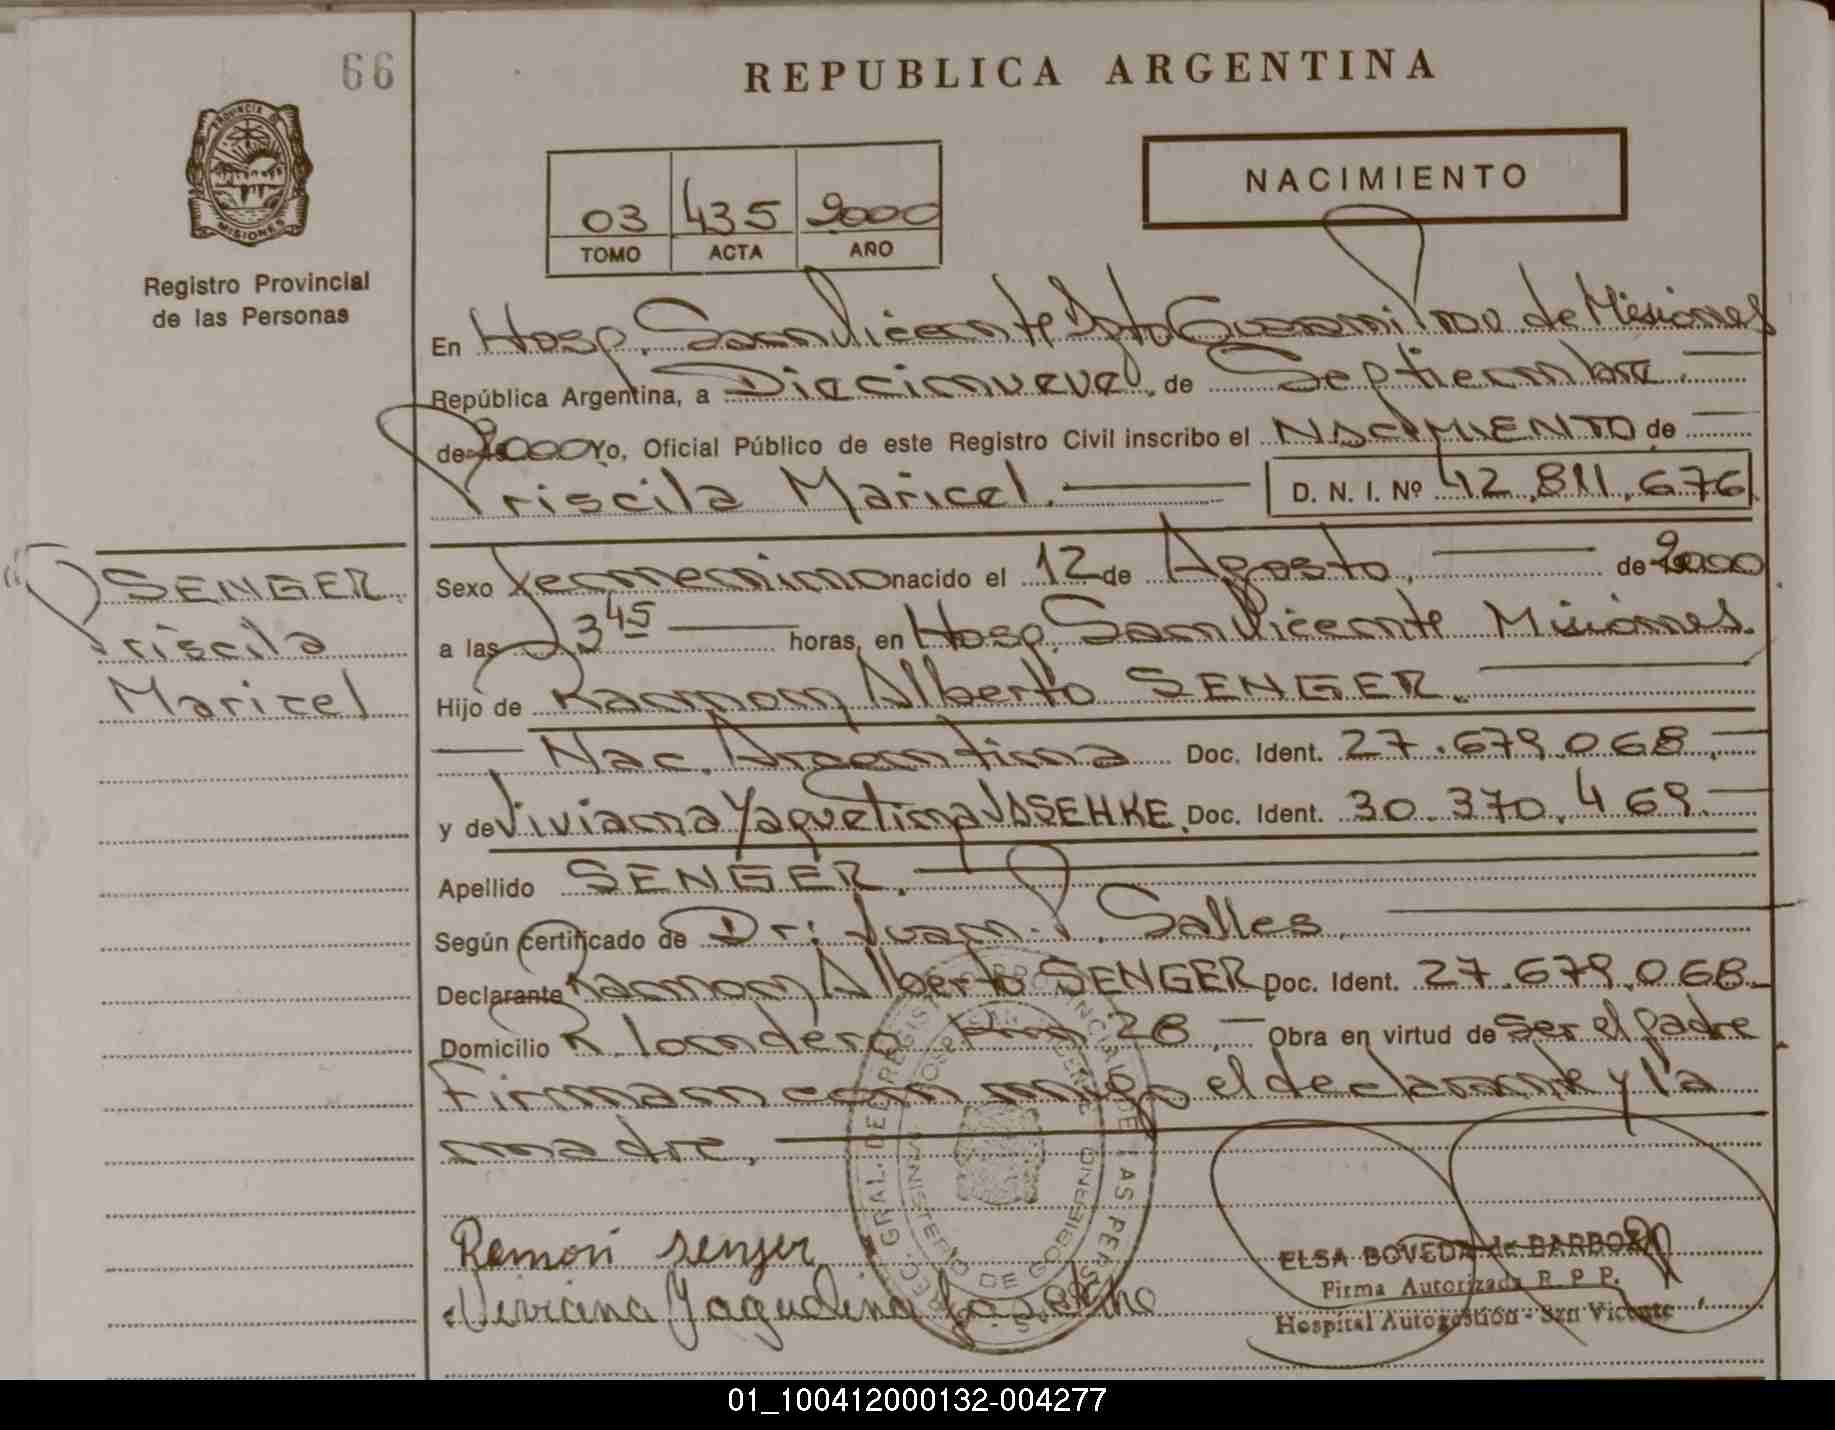 66
REPUBLICA ARGENTINA
PROVINCIA DE
MISIONES
Registro Provincial
de las Personas
03 435 2000
TOMO ACTA AÑO
NACIMIENTO
En Hosp. San Vicente Dpto Guarani Prov. de Misiones
República Argentina, a Diecinueve de Septiembre.
de 2000 Yo, Oficial Público de este Registro Civil inscribo el NACIMIENTO de
Priscila Maricel. D. N. I. Nº 42.811.676
SENGER
Priscila
Maricel
Sexo Femenino nacido el 12 de Agosto, de 2000
a las 23 45 horas, en Hosp. San Vicente Misiones.
Hijo de Ramon Alberto SENGER.
Nac. Argentina Doc. Ident. 27.679.068
y de Viviana Yaquelina JASEHKE. Doc. Ident. 30.370.469.
Apellido SENGER.
Según certificado de Dr: Juan. P. Salles
Declarante Ramon Alberto SENGER Doc. Ident. 27.679.068
Domicilio R. Londero Km 28, Obra en virtud de ser el padre
Firman con migo el declarante y la
madre.
Ramon Senger
Viviana Yaquelina
ELSA BOVEDA de BARBOZA
Firma Autorizada R. P. P.
Hospital Autogestión - San Vicente
01_100412000132-004277